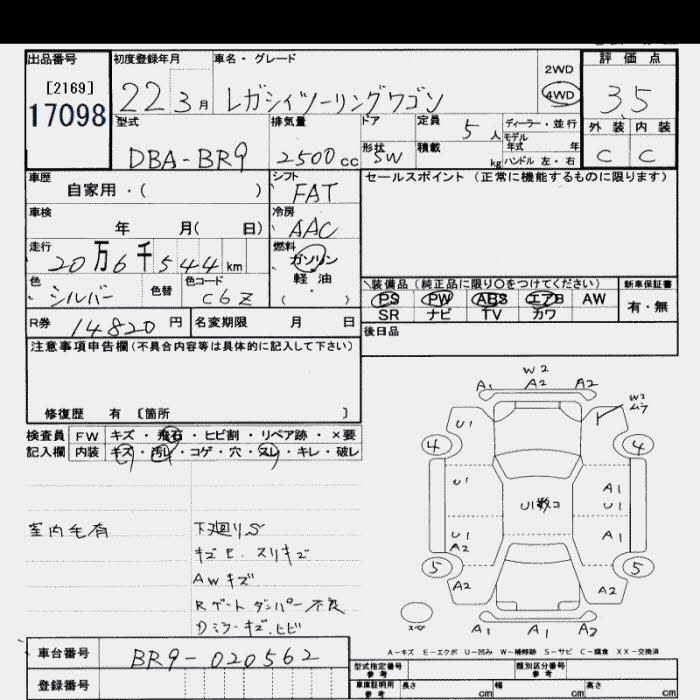 出品番号
[2169]
17098
初度登録年月
22 3月
車名・グレード
レガシィツーリングワゴン
2WD
4WD
評価点
3.5
外装 内装
C C
型式
DBA-BR9
排気量
2500cc
ドア
形状
5W
定員
5人
積載
kg
ディーラー・並行
モデル
年式 年
ハンドル 左・右
車歴
自家用・( )
シフト
FAT
セールスポイント (正常に機能するものに限ります)
車検
年 月( 日)
冷房
AAC
走行
20万6千544km
燃料
ガソリン
軽油
( ・ )
色
シルバー
色替
色コード
C6Z
装備品 (純正品に限り〇をつけてください)
PS PW ABS エアB AW
SR ナビ TV カワ
新車保証書
有・無
R券
14820円
名変期限 月 日
後日品
注意事項申告欄(不具合内容等は具体的に記入して下さい)
修復歴 有 [箇所 ]
検査員
記入欄
FW キズ・飛石・ヒビ割・リペア跡・×要
内装 キズ・汚れ・コゲ・穴・スレ・キレ・破レ
室内毛有
下廻りS
キズE. スリキズ
AWキズ
Rゲートダンパー不良
Dミラーキズ.ヒビ
W2
A1 A2 A2
U1
W2
ムラ
4 4
U1
U1数コ
A1
U1
U1
A2
A1
5 5
A2 A2
スペア
A1 A1 A2
A-キズ E-エクボ U-凹み W-補修跡 S-サビ C-腐食 XX-交換済
車台番号
BR9-020562
登録番号
型式指定番号
参考
類別区分番号
参考
車庫証明用
参考
長さ cm
幅 cm
高さ cm